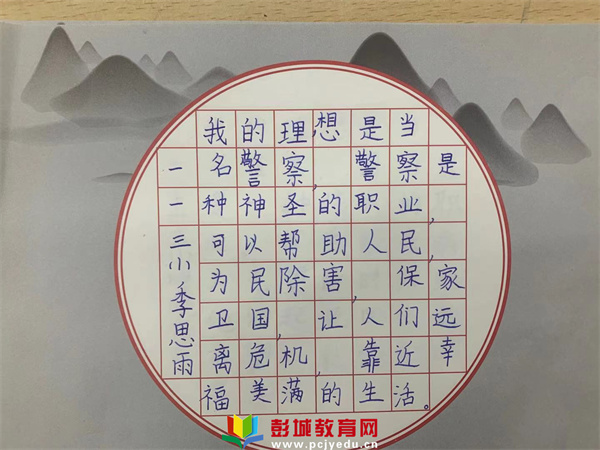 我的理想是当
一名警察，警察是
一种神圣的职业，
可以帮助人民，
为民除害，保家
卫国，让人们远
离危机，靠近幸
福美满的生活。
三小季思雨
彭城教育网
www.pcjyedu.cn